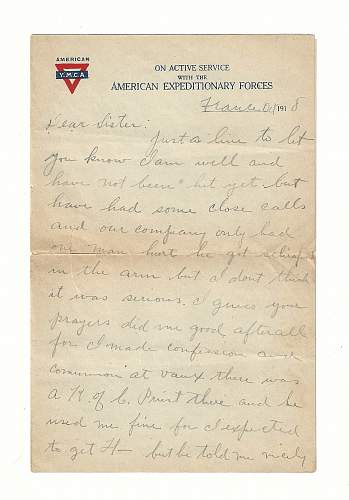 AMERICAN
Y.M.C.A.
ON ACTIVE SERVICE
WITH THE
AMERICAN EXPEDITIONARY FORCES
France 1918
Dear Sister:
Just a line to let
you know I am well and
have not been "hit yet. but
have had some close calls
and our company only had
one man hurt he got
in the arm but I dont think
it was serious. I guess your
prayers did me good afterall
for I made confession and
communion at vaux there was
a K. of C. Priest there and he
used me fine for I expected
to get H— but he told me nicely